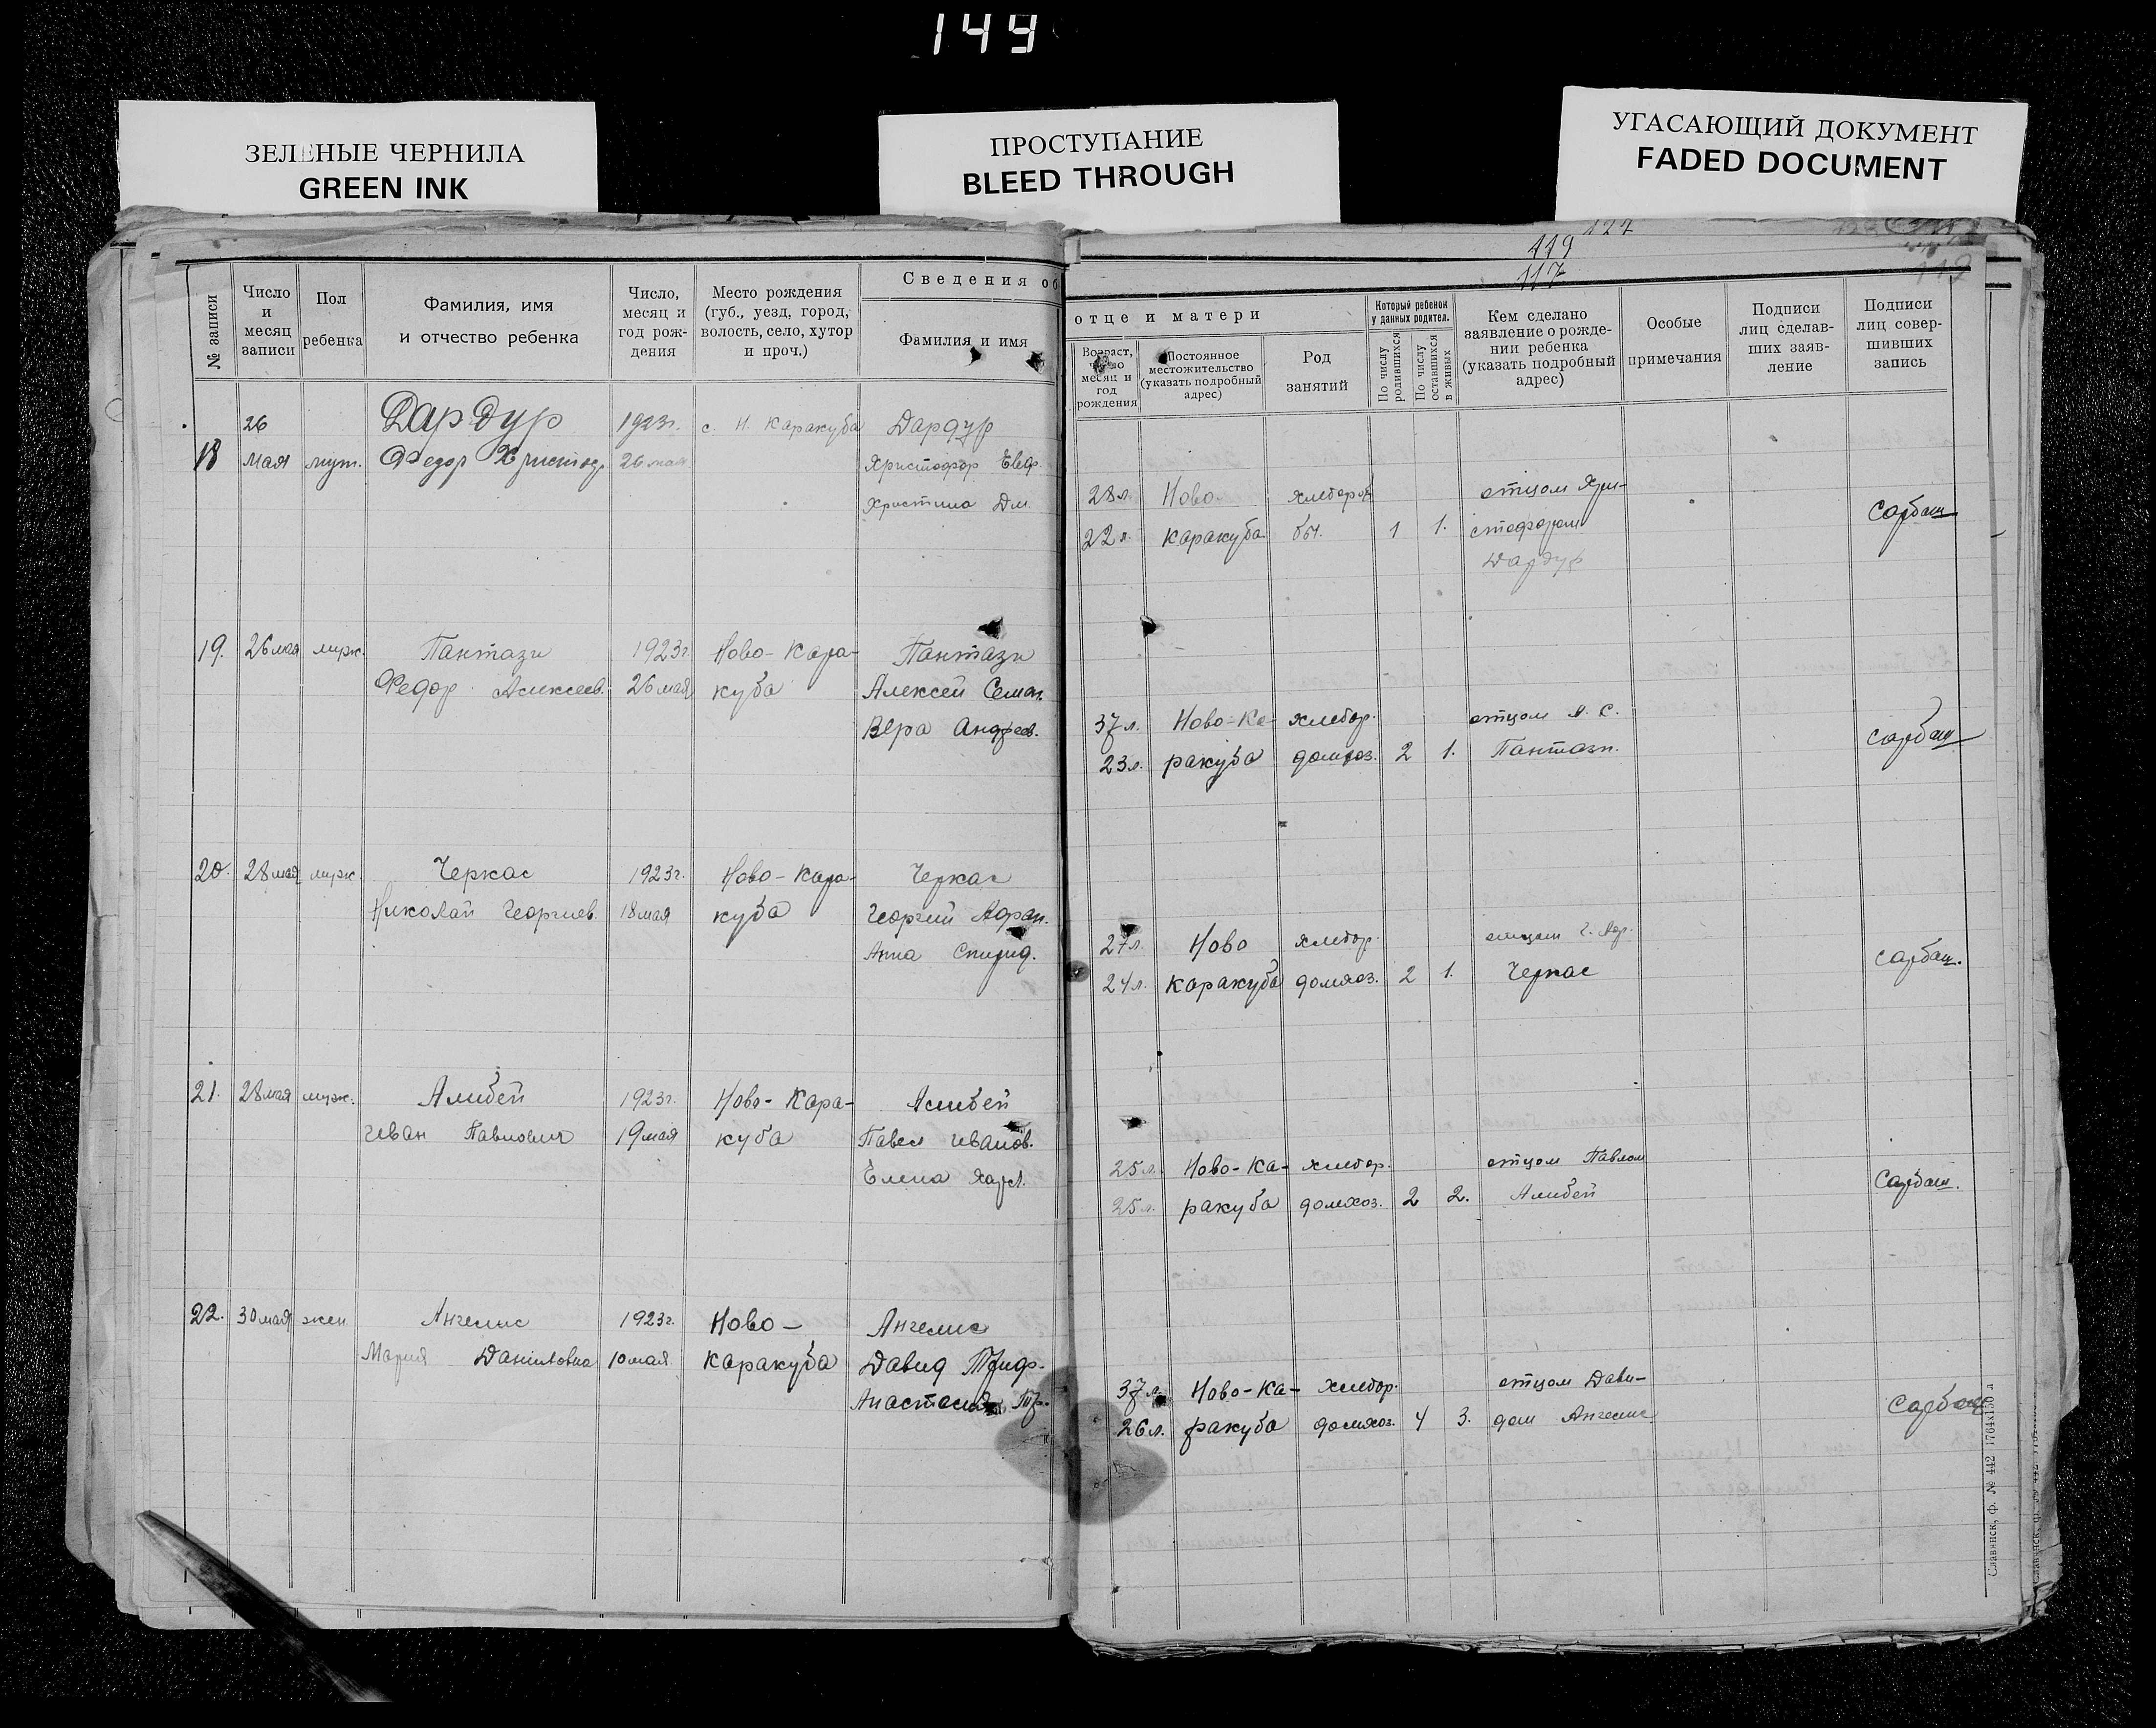 149
ЗЕЛЕНЫЕ ЧЕРНИЛА
GREEN INK
ПРОСТУПАНИЕ
BLEED THROUGH
УГАСАЮЩИЙ ДОКУМЕНТ
FADED DOCUMENT
127
119
117
№ записи
Число и месяц записи
Пол ребенка
Фамилия, имя и отчество ребенка
Число, месяц и год рождения
Место рождения (губ., уезд, город, волость, село, хутор и проч.)
Сведения об отце и матери
Фамилия и имя
Возраст, число месяц и год рождения
Постоянное местожительство (указать подробный адрес)
Род занятий
Который ребенок у данных родител.
По числу родившихся
По числу оставшихся в живых
Кем сделано заявление о рождении ребенка (указать подробный адрес)
Особые примечания
Подписи лиц сделавших заявление
Подписи лиц совершивших запись
26 Дардур 1923г. с. Н. Каракуба Дардур
18 мая муж. Федор Христоф. 26 мая Христофор Евф.
Христина Дм.
28 л. Ново хлебороб отцом Хри-
22 л. Каракуба 1 1. стофором Сарбаш
Дардур
19. 26 мая муж. Пантази 1923г Ново-Кара- Пантази
Федор Алексеев. 26 мая куба Алексей Семен.
Вера Андреев.
37 л. Ново-Ка- хлебор. отцом А. С.
23 л. ракуба домхоз. 2 1. Пантази. Сарбаш
20. 28 мая муж Черкас 1923г. Ново-Кара- Черкас
Николай Георгиев. 18 мая куба Георгий Афан.
Анна Спирид.
27 л. Ново хлебор. отцом Г. Аф.
24 л. Каракуба домхоз. 2 1. Черкас Сарбаш.
21. 28 мая муж. Алибей 1923г. Ново-Кара- Алибей
Иван Павлович 19 мая куба Павел Иванов.
Елена Харл.
25 л. Ново-Ка- хлебор. отцом Павлом
25 л. ракуба домхоз. 2 2. Алибей Сарбаш.
22. 30 мая жен Ангелис 1923г. Ново- Ангелис
Мария Даниловна 10 мая Каракуба Давид Триф.
Анастасия Тр.
37 л. Ново-Ка- хлебор. отцом Дави-
26 л. ракуба домхоз. 4 3. дом Ангелис Сарбаш
Славянск, ф. № 442 1764х150 л